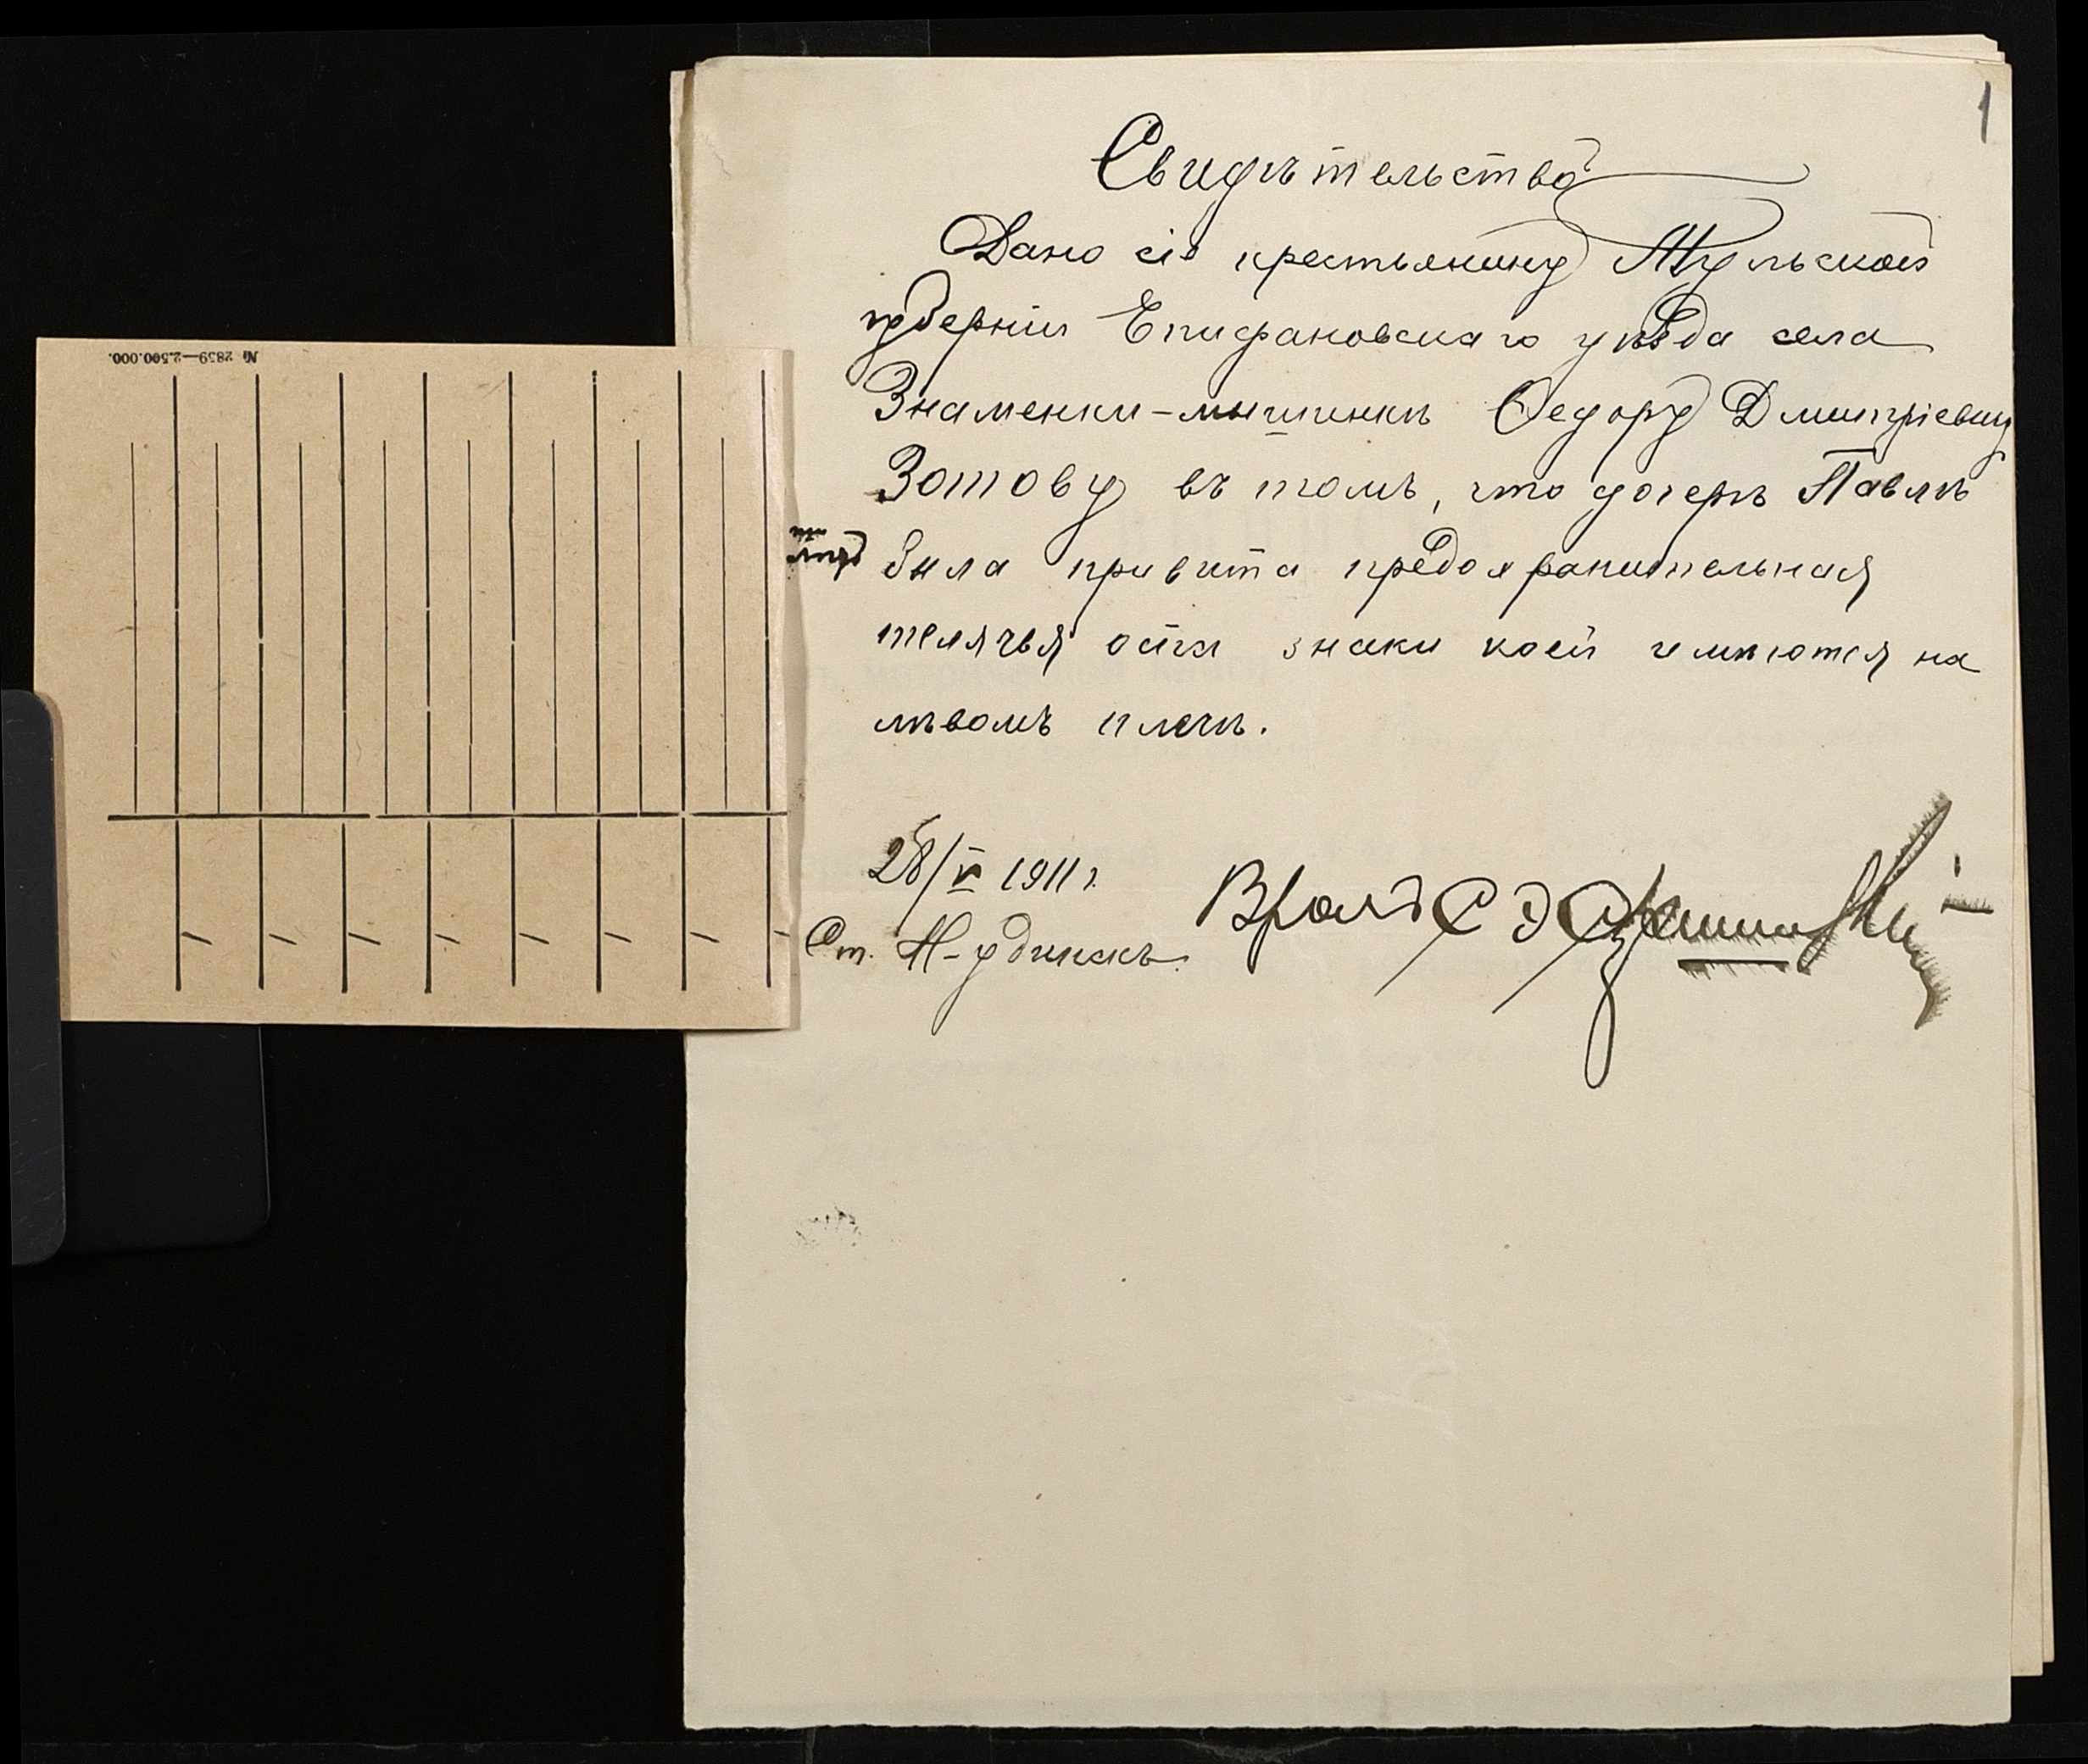 1
Свидѣтельство
Дано сіе крестьянину Тульской
губерніи Епифановскаго уѣзда села
Знаменки-мышенки Ѳедору Дмитріевичу
Зотову въ томъ, что дочерѣ Павлѣ
была привита предохранительная
телячья оспа знаки коей имѣются на
лѣвомъ плечѣ.
28/V 1911 г.
Врачъ С Э
Ст. Н-удинскъ.
№ 2839—2.500.000.